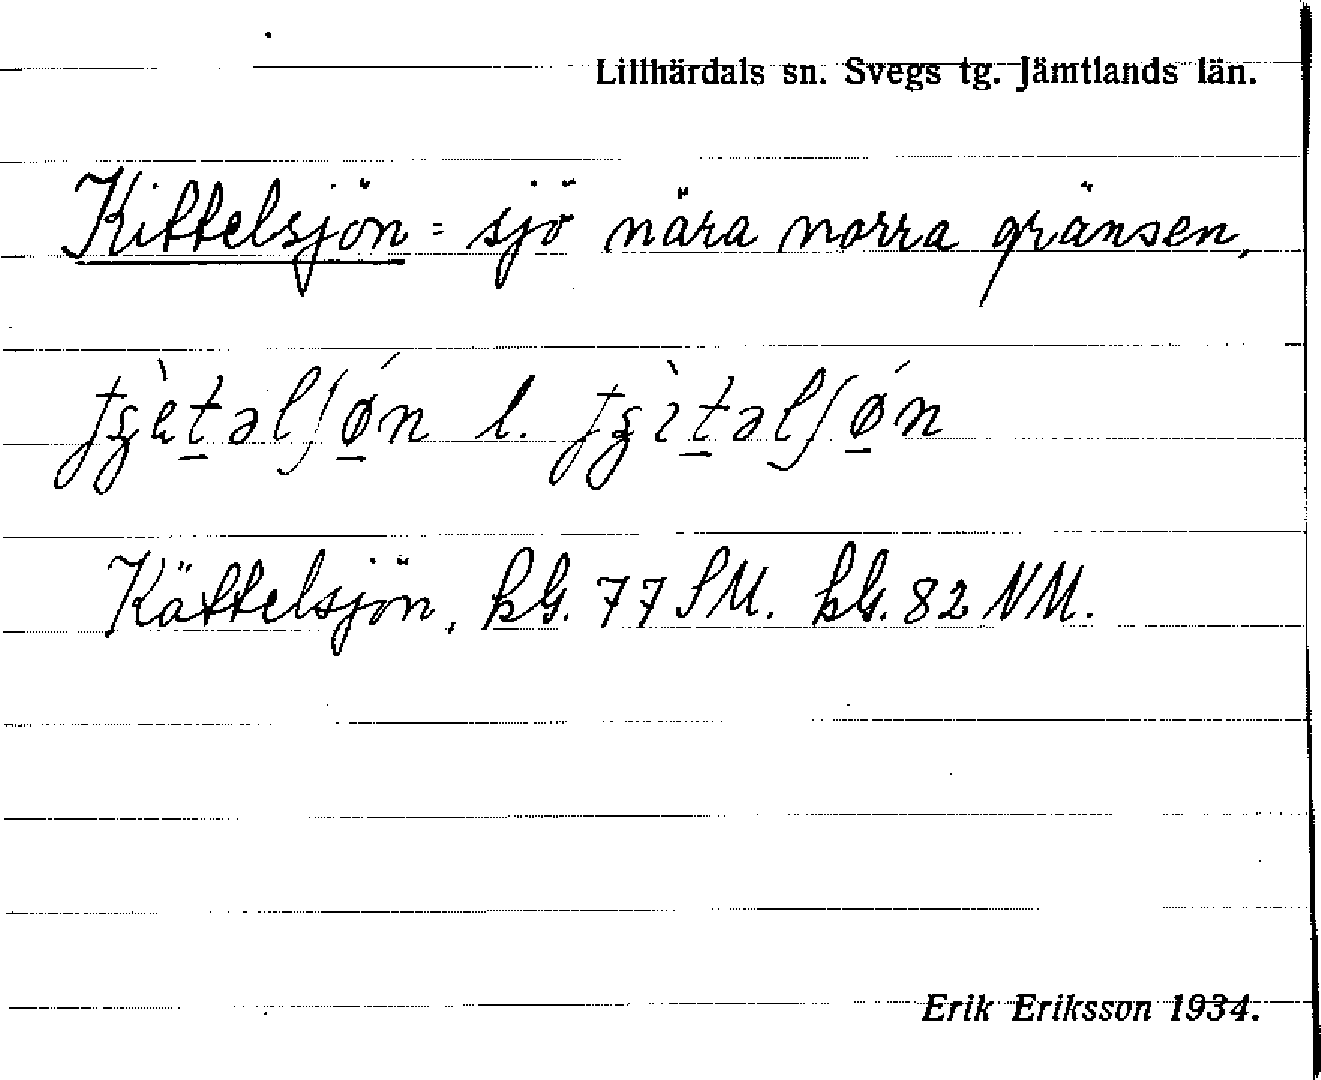 Lillhärdals sn. Svegs tg. Jämtlands län.
Kittelsjön = sjö nära norra gränsen.
l.
Kättelsjön, kbl. 77 SM. kbl. 82 NM.
Erik Eriksson 1934.